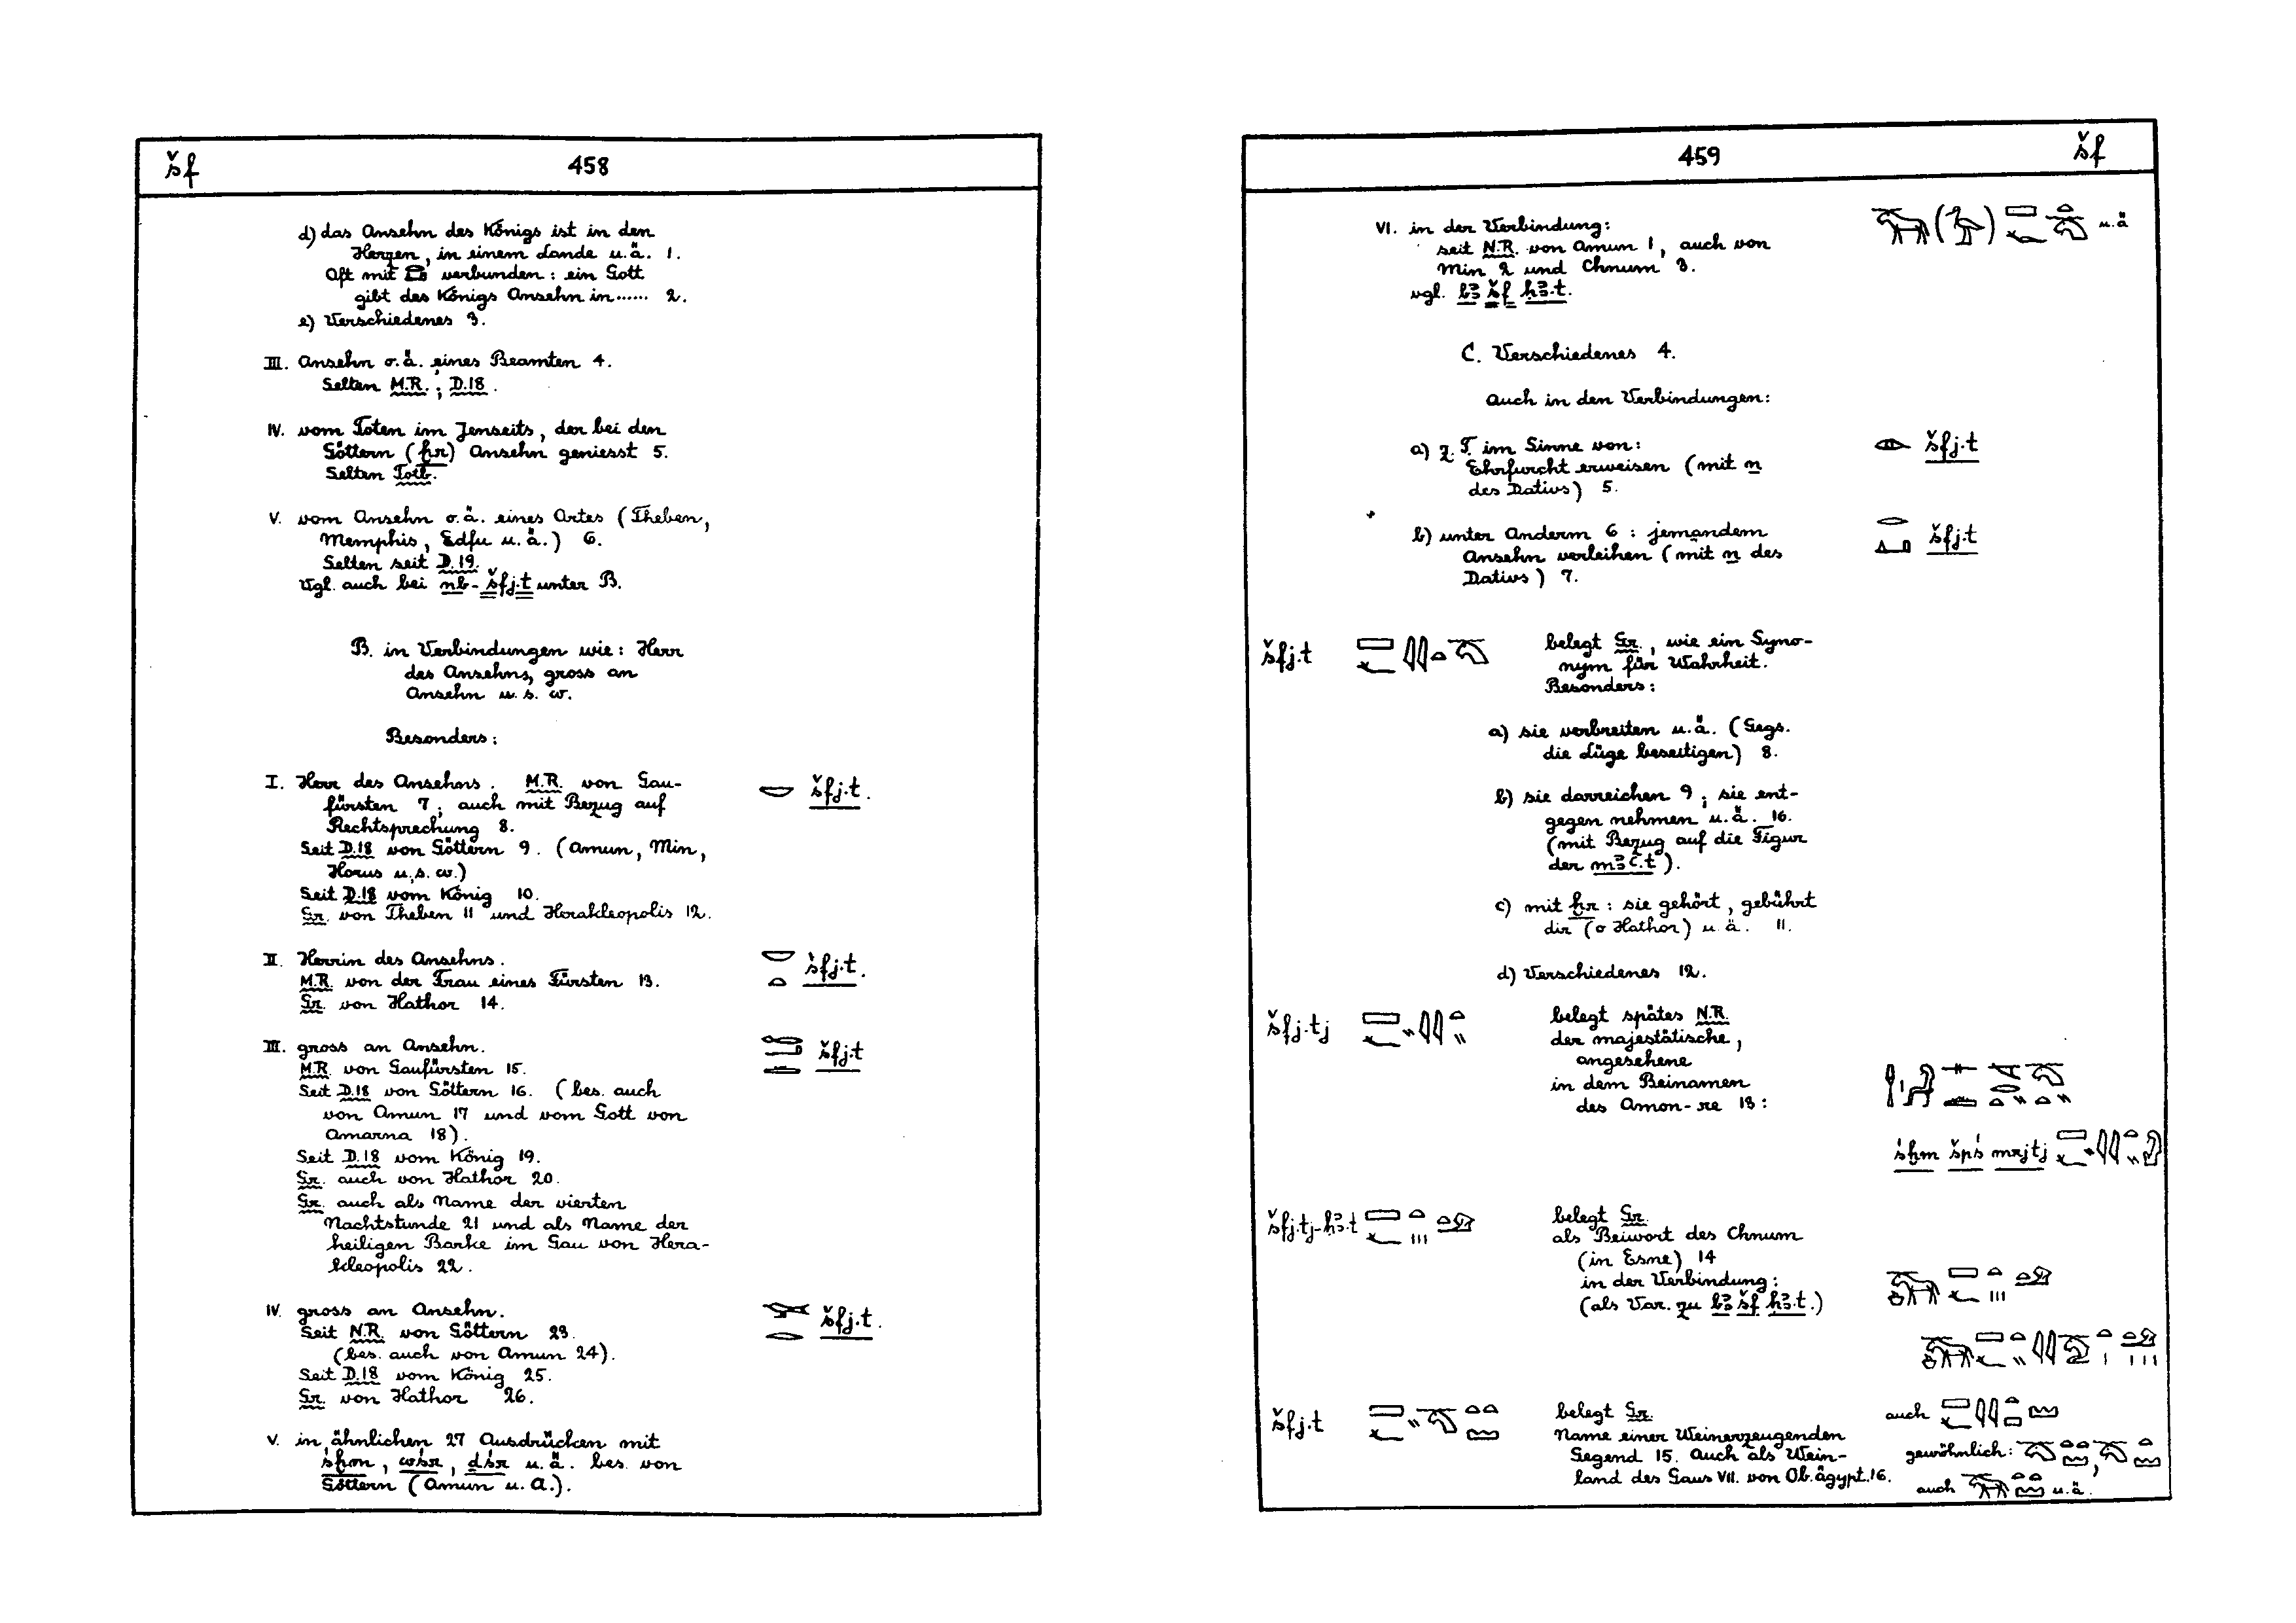 šf 458
d) das Ansehn des Königs ist in den
Herzen, in einem Lande u.ä. 1.
Oft mit verbunden: ein Gott
gibt des Königs Ansehn in...... 2.
e) Verschiedenes 3.
III. Ansehn o.ä. eines Beamten 4.
Selten M.R.; D.18.
IV. vom Toten im Jenseits, der bei den
Göttern (ḫr) Ansehn geniesst 5.
Selten Totb.
V. vom Ansehn o.ä. eines Ortes (Theben,
Memphis, Edfu u.ä.) 6.
Selten seit D.19.
Vgl. auch bei nb-šfj.t unter B.
B. in Verbindungen wie: Herr
des Ansehns, gross an
Ansehn u.s.w.
Besonders:
I. Herr des Ansehns. M.R. von Gau- šfj.t.
fürsten 7; auch mit Bezug auf
Rechtsprechung 8.
Seit D.18 von Göttern 9. (Amun, Min,
Horus u.s.w.)
Seit D.18 vom König 10.
Gr. von Theben 11 und Herakleopolis 12.
II. Herrin des Ansehns. šfj.t.
M.R. von der Frau eines Fürsten 13.
Gr. von Hathor 14.
III. gross an Ansehn. šfj.t
M.R. von Gaufürsten 15.
Seit D.18 von Göttern 16. (bes. auch
von Amun 17 und vom Gott von
Amarna 18).
Seit D.18 vom König 19.
Gr. auch von Hathor 20.
Gr. auch als Name der vierten
Nachtstunde 21 und als Name der
heiligen Barke im Gau von Hera-
kleopolis 22.
IV. gross an Ansehn. šfj.t.
Seit N.R. von Göttern 23.
(bes. auch von Amun 24).
Seit D.18 vom König 25.
Gr. von Hathor 26.
V. in ähnlichen 27 Ausdrücken mit
śḫm, wśr, dśr u.ä. bes. von
Göttern (Amun u. A.).
459 šf
VI. in der Verbindung: u.ä
seit N.R. von Amun 1, auch von
Min 2 und Chnum 3.
vgl. bꜣ šf ḥꜣ.t.
C. Verschiedenes 4.
Auch in den Verbindungen:
a) z.T. im Sinne von: šfj.t
Ehrfurcht erweisen (mit n
des Dativs) 5.
b) unter Anderm 6: jemandem šfj.t
Ansehn verleihen (mit n des
Dativs) 7.
šfj.t belegt Gr., wie ein Syno-
nym für Wahrheit.
Besonders:
a) sie verbreiten u.ä. (Gegs.
die Lüge beseitigen) 8.
b) sie darreichen 9; sie ent-
gegen nehmen u.ä. 10.
(mit Bezug auf die Figur
der mꜣꜥ.t).
c) mit ḫr: sie gehört, gebührt
dir (o Hathor) u.ä. 11.
d) Verschiedenes 12.
šfj.tj belegt spätes N.R.
der majestätische,
angesehene
in dem Beinamen
des Amon-re 13:
śḫm špś mrjtj
šfj.tj-ḥꜣ.t belegt Gr.
als Beiwort des Chnum
(in Esne) 14
in der Verbindung:
(als Var. zu bꜣ šf ḥꜣ.t.)
šfj.t belegt Gr. auch
Name einer Weinerzeugenden
Gegend 15. Auch als Wein- gewöhnlich:
land des Gaus VII. von Ob.ägypt. 16.
auch u.ä.